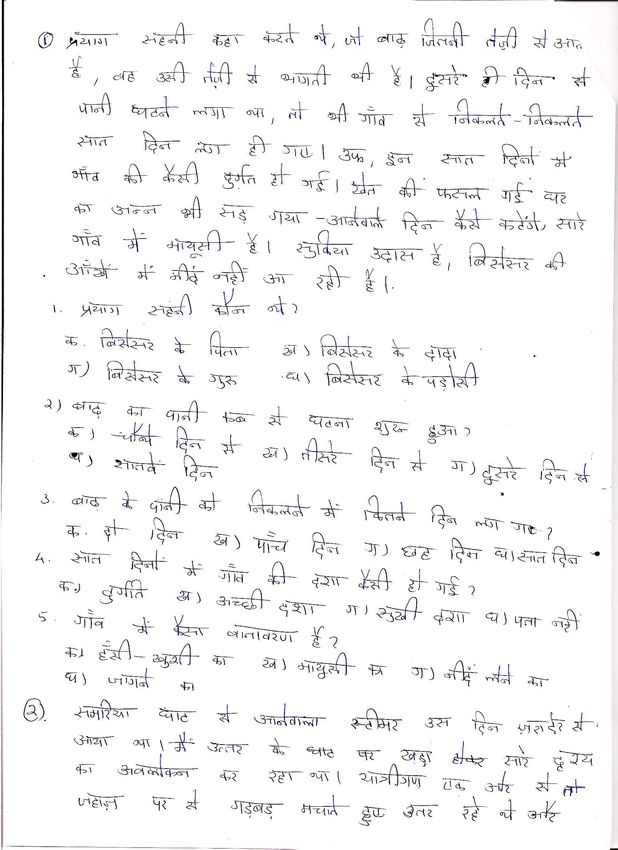 ① प्रयाग सहनी कहा करते थे, जो बाढ़ जितनी तेज़ी से आत
है, वह उसी तेज़ी से भागती भी है। दूसरे ही दिन से
पानी घटने लगा था, तो भी गाँव से निकलते-निकलते
सात दिन लग ही गए। उफ़, इन सात दिनों में
गाँव की कैसी दुर्गत हो गई। खेत की फसल गई घर
का अन्न भी सड़ गया-आनेवाले दिन कैसे कटेंगे, सारे
गाँव में मायूसी है। सुकिया उदास है, बिसेसर की
आँखें में नींद नहीं आ रही है।
1. प्रयाग सहनी कौन थे?
क. बिसेसर के पिता ख) बिसेसर के दादा
ग) बिसेसर के गुरु घ) बिसेसर के पड़ोसी
2) बाढ़ का पानी कब से घटना शुरू हुआ?
क) चौथे दिन से ख) तीसरे दिन से ग) दूसरे दिन से
घ) सातवें दिन
3. बाढ के पानी को निकलने में कितने दिन लग गए?
क. दो दिन ख) पाँच दिन ग) छह दिन घ) सात दिन
4. सात दिनों में गाँव की दशा कैसी हो गई?
क) दुर्गति ख) अच्छी दशा ग) सुखी दशा घ) पता नहीं
5. गाँव में कैसा वातावरण है?
क) हँसी-खुशी का ख) मायूसी का ग) नींद लेने का
घ) जागने का
②. समरिया घाट से आनेवाला स्टीमर उस दिन ज़रा देर से
आया था। मैं उत्तर के घाट पर खड़ा होकर सारे दृश्य
का अवलोकन कर रहा था। यात्रीगण एक ओर से तो
जहाज़ पर से गड़बड़ मचाते हुए उतर रहे थे और